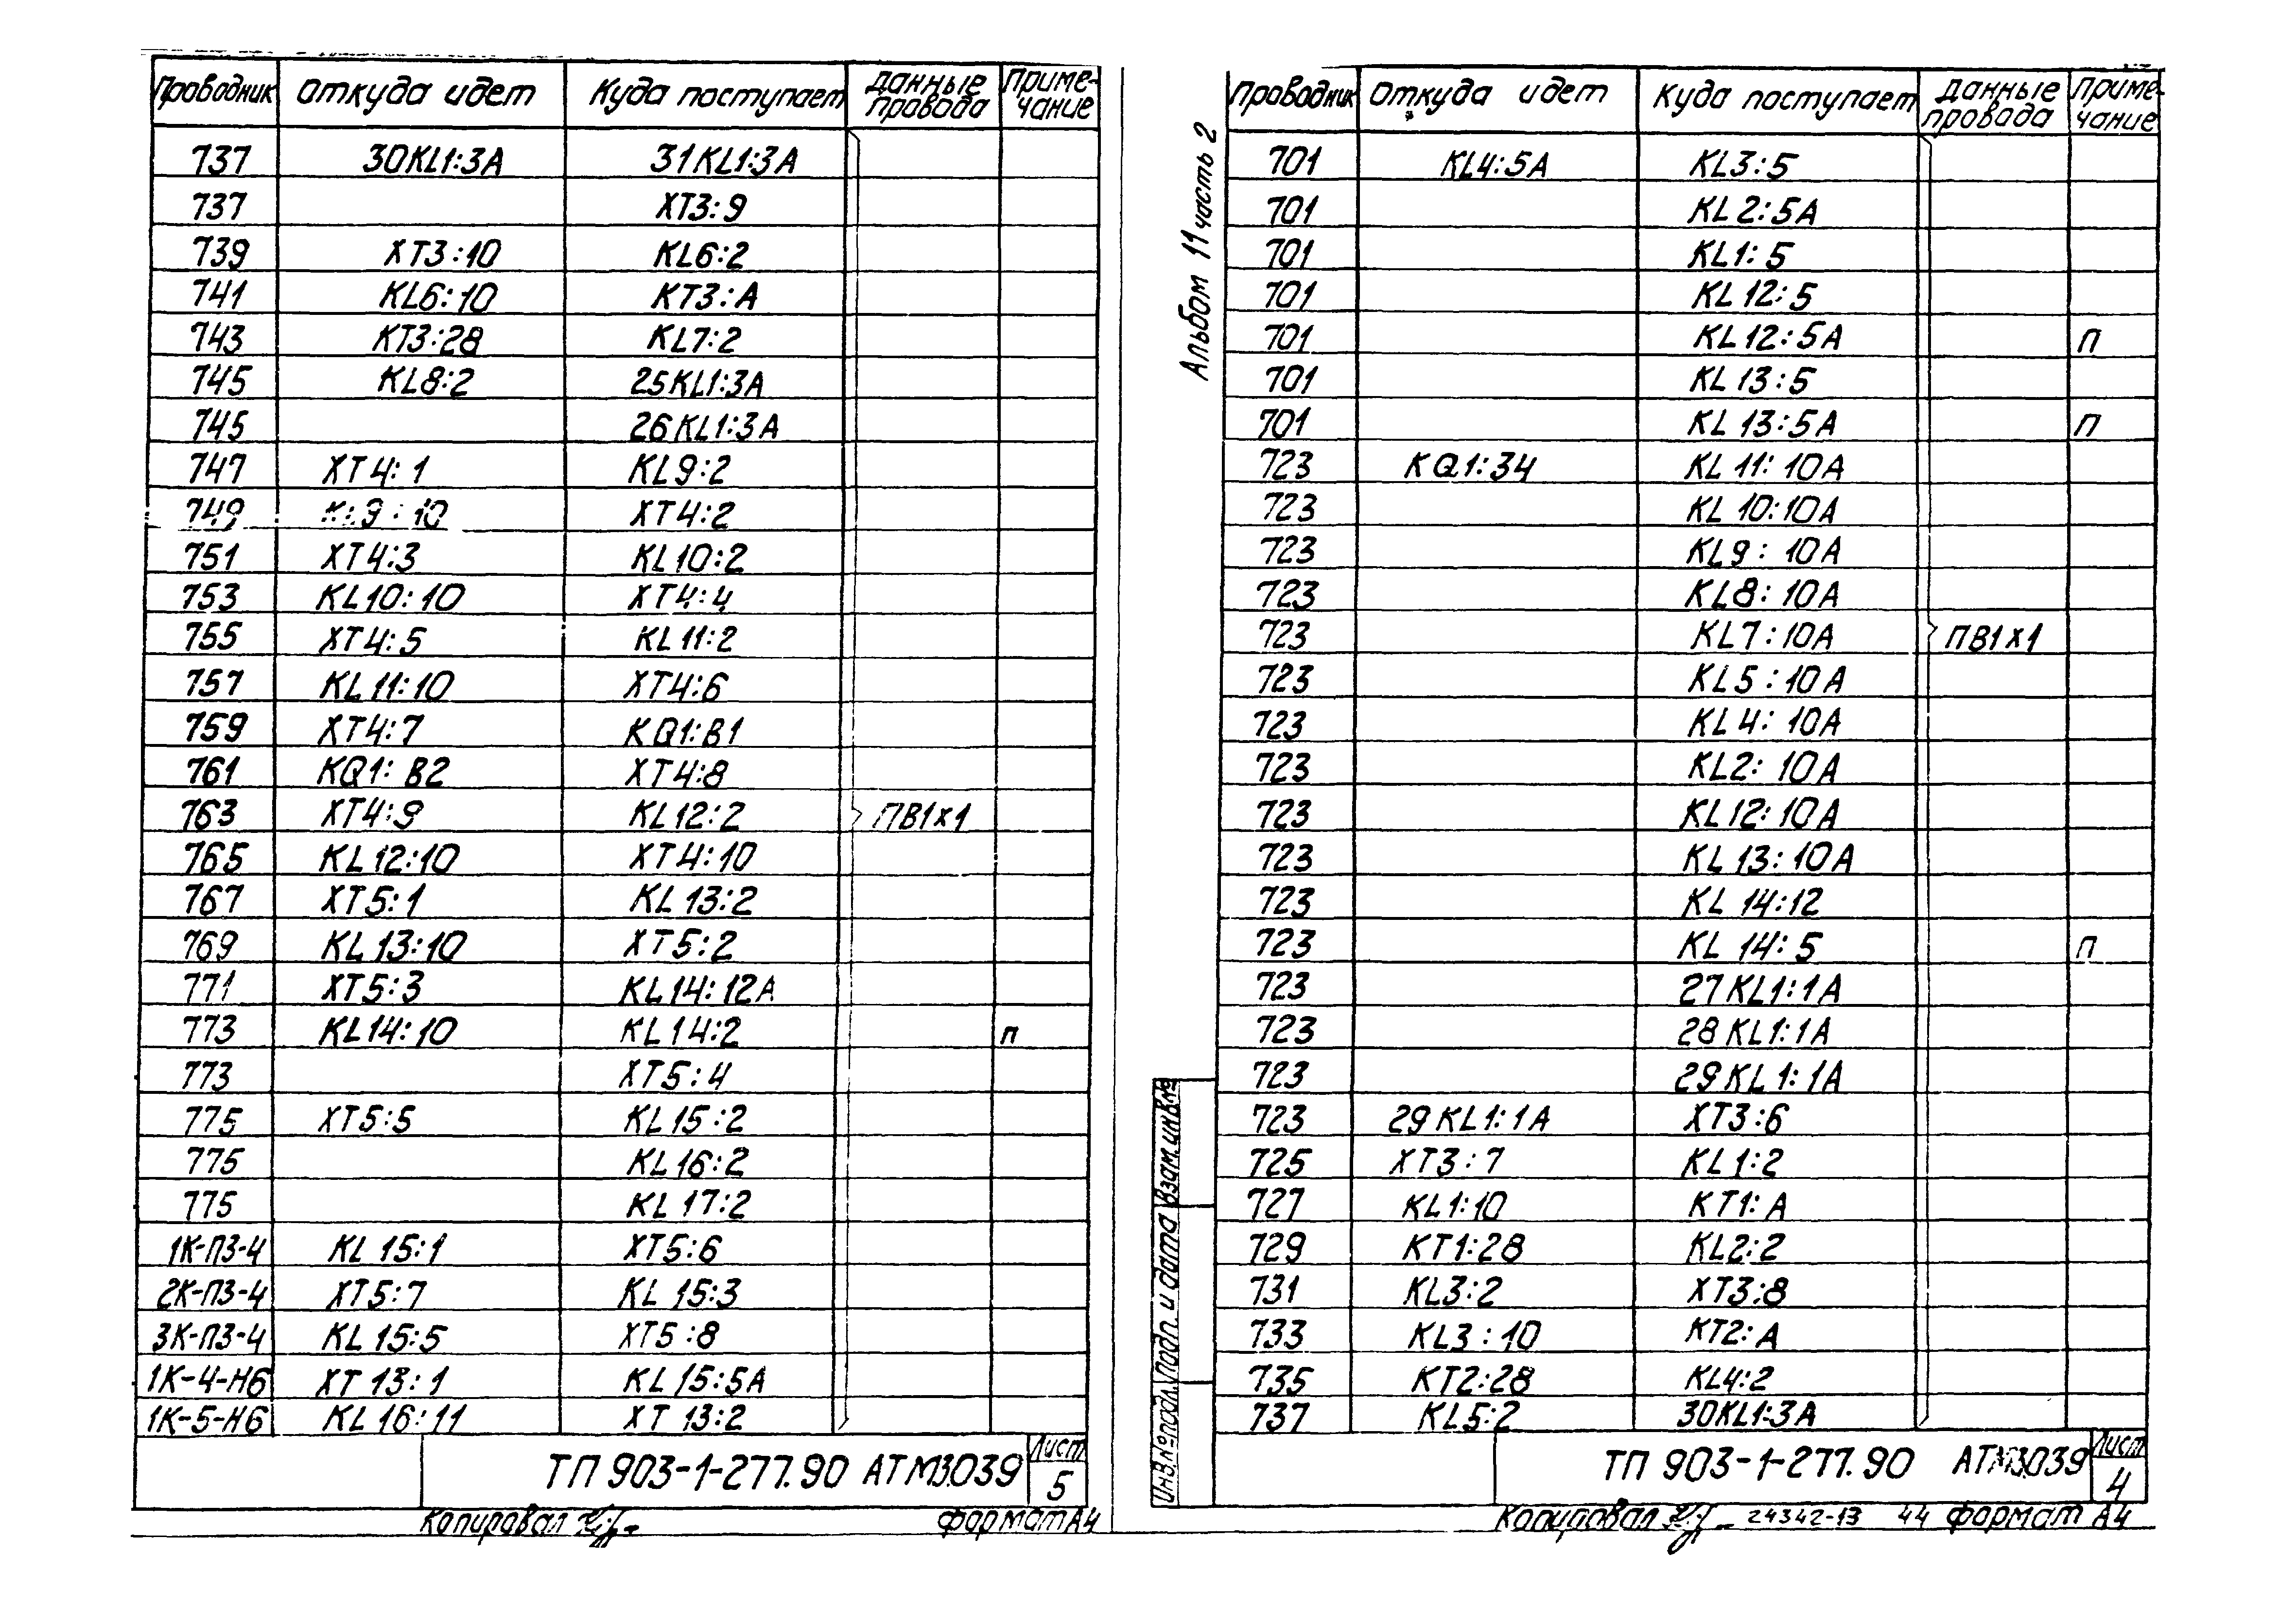 Проводник Откуда идет Куда поступает Данные провода Примечание
737 30KL1:3A 31KL1:3A
737 XT3:9
739 XT3:10 KL6:2
741 KL6:10 KT3:A
743 KT3:28 KL7:2
745 KL8:2 25KL1:3A
745 26KL1:3A
747 XT4:1 KL9:2
749 KL9:10 XT4:2
751 XT4:3 KL10:2
753 KL10:10 XT4:4
755 XT4:5 KL11:2
757 KL11:10 XT4:6
759 XT4:7 KQ1:B1
761 KQ1:B2 XT4:8
763 XT4:9 KL12:2 ПВ1х1
765 KL12:10 XT4:10
767 XT5:1 KL13:2
769 KL13:10 XT5:2
771 XT5:3 KL14:12A
773 KL14:10 KL14:2 п
773 XT5:4
775 XT5:5 KL15:2
775 KL16:2
775 KL17:2
1К-П3-4 KL15:1 XT5:6
2К-П3-4 XT5:7 KL15:3
3К-П3-4 KL15:5 XT5:8
1К-4-Н6 XT13:1 KL15:5A
1К-5-Н6 KL16:11 XT13:2
ТП 903-1-277.90 АТМ3.039 Лист 5
Копировал Формат А4
Альбом 11 часть 2
Проводник Откуда идет Куда поступает Данные провода Примечание
701 KL4:5A KL3:5
701 KL2:5A
701 KL1:5
701 KL12:5
701 KL12:5A п
701 KL13:5
701 KL13:5A п
723 KQ1:34 KL11:10A
723 KL10:10A
723 KL9:10A
723 KL8:10A
723 KL7:10A ПВ1х1
723 KL5:10A
723 KL4:10A
723 KL2:10A
723 KL12:10A
723 KL13:10A
723 KL14:12
723 KL14:5 п
723 27KL1:1A
723 28KL1:1A
723 29KL1:1A
723 29KL1:1A XT3:6
725 XT3:7 KL1:2
727 KL1:10 KT1:A
729 KT1:28 KL2:2
731 KL3:2 XT3:8
733 KL3:10 KT2:A
735 KT2:28 KL4:2
737 KL5:2 30KL1:3A
Инв.№подл. Подп. и дата Взам.инв.№
ТП 903-1-277.90 АТМ3.039 Лист 4
Копировал 24342-13 44 Формат А4